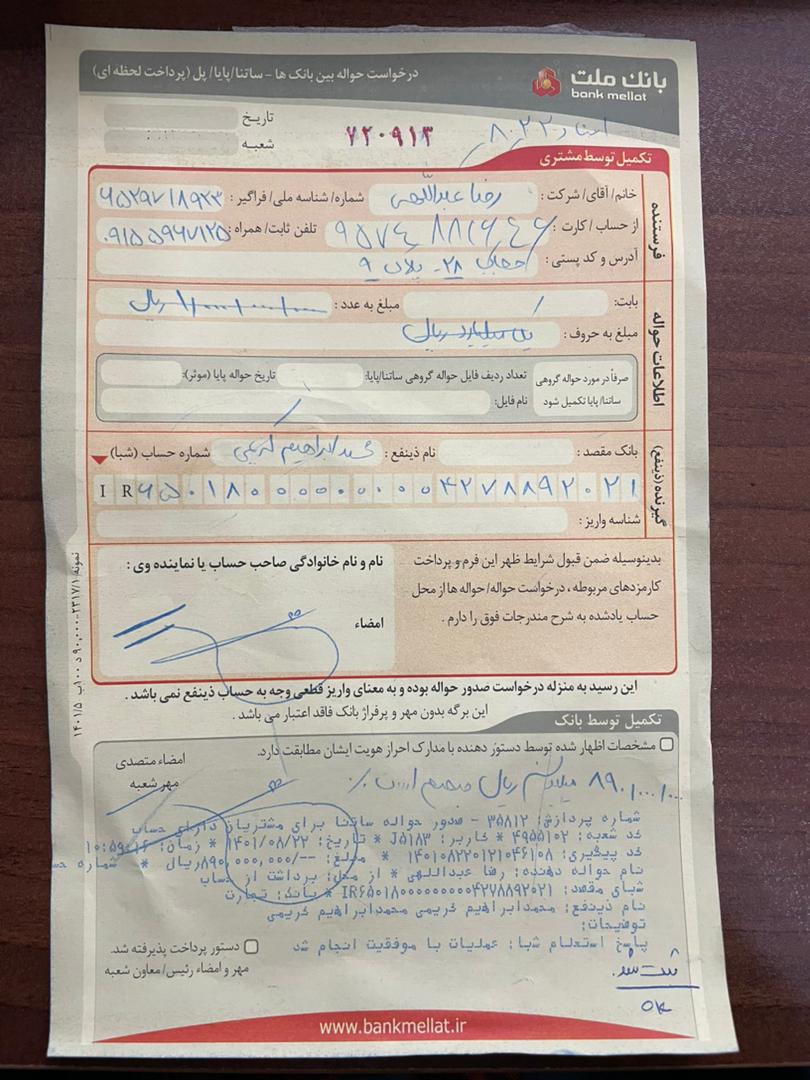 بانک ملت
bank mellat
درخواست حواله بین بانک ها - ساتنا/پایا/ پل (پرداخت لحظه ای)
تاریخ
شعبه
۷۲۰۹۱۳
تکمیل توسط مشتری
فرستنده
خانم/ آقای/ شرکت : رضا عبداللهی شماره/ شناسه ملی/ فراگیر :
از حساب / کارت : تلفن ثابت/ همراه : ۰۹۱۵۵۹۶۷۱۲۵
آدرس و کد پستی : ۲۸ - پلاک ۹
اطلاعات حواله
بابت: مبلغ به عدد : ۱,۰۰۰,۰۰۰,۰۰۰ ریال
مبلغ به حروف : یک میلیارد ریال
صرفاً در مورد حواله گروهی ساتنا/ پایا تکمیل شود
تعداد ردیف فایل حواله گروهی ساتنا/پایا: تاریخ حواله پایا (موثر):
نام فایل:
گیرنده (ذینفع)
بانک مقصد : نام ذینفع : محمد ابراهیم کریمی شماره حساب (شبا)
I R ۶۵۰۱۸۰۰۰۰۰۰۰۰۰۰۴۲۷۸۸۹۲۰۲۱
شناسه واریز :
بدینوسیله ضمن قبول شرایط ظهر این فرم و پرداخت
کارمزدهای مربوطه ، درخواست حواله/ حواله ها از محل
حساب یادشده به شرح مندرجات فوق را دارم .
نام و نام خانوادگی صاحب حساب یا نماینده وی :
امضاء
این رسید به منزله درخواست صدور حواله بوده و به معنای واریز قطعی وجه به حساب ذینفع نمی باشد .
این برگه بدون مهر و پرفراژ بانک فاقد اعتبار می باشد .
تکمیل توسط بانک
مشخصات اظهار شده توسط دستور دهنده با مدارک احراز هویت ایشان مطابقت دارد.
امضاء متصدی
مهر شعبه
۸۹۰,۰۰۰,۰۰۰ ریال
شماره پردازش: ۳۵۸۱۲ - صدور حواله ساتنا برای مشتریان دارای حساب
کد شعبه: ۴۹۵۵۱۰۲ * کاربر: J۵۱۸۳ * تاریخ: ۱۴۰۱/۰۸/۲۲ * زمان: ۱۰:۵۹:۱۶
کد پیگیری: ۱۴۰۱۰۸۲۲۰۱۲۱۰۴۶۱۰۸ * مبلغ: --/۸۹۰,۰۰۰,۰۰۰ریال * شماره حس
نام حواله دهنده: رضا عبداللهی * از محل: برداشت از حساب
شبای مقصد: IR۶۵۰۱۸۰۰۰۰۰۰۰۰۰۰۴۲۷۸۸۹۲۰۲۱ * بانک: تجارت
نام ذینفع: محمدابراهیم کریمی محمدابراهیم کریمی
توضیحات:
پاسخ استعلام شبا: عملیات با موفقیت انجام شد
دستور پرداخت پذیرفته شد.
مهر و امضاء رئیس/ معاون شعبه
ثبت شد.
OK
www.bankmellat.ir